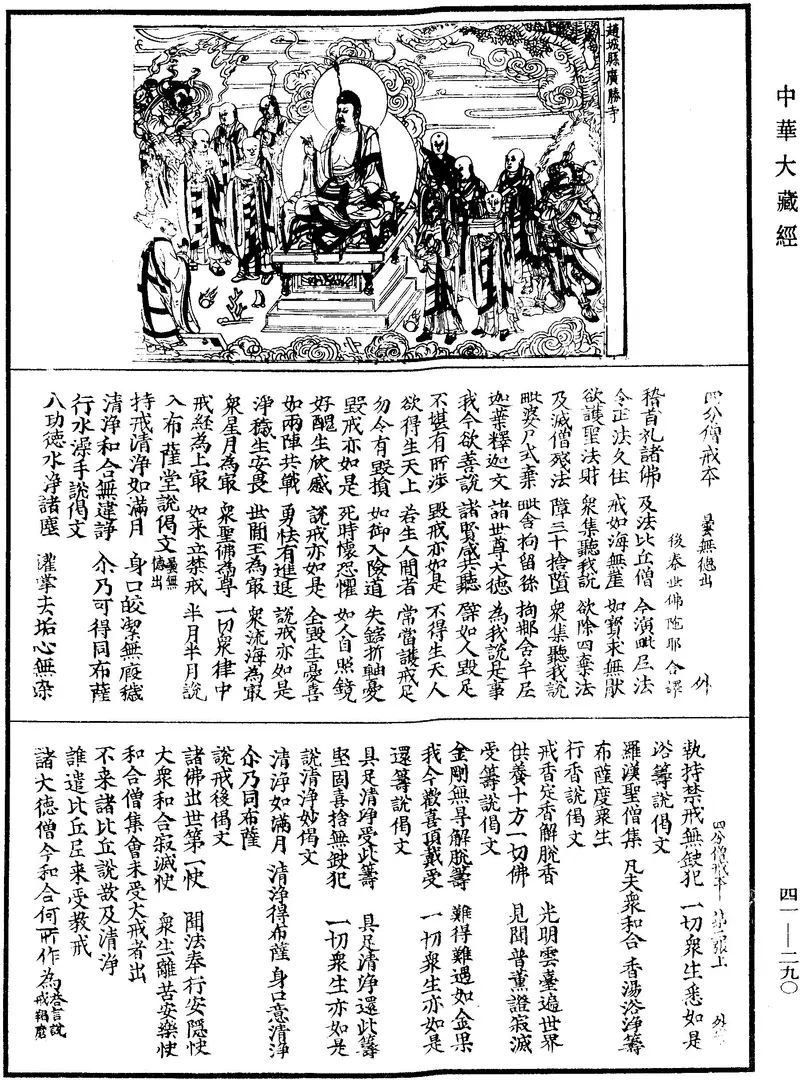 中華大藏經
趙城縣廣勝寺
四分僧戒本 曇無德出 外
後秦世佛陀耶舍譯
稽首礼諸佛 及法比丘僧 今演毗尼法
令正法久住 戒如海無崖 如寶求無猒
欲護聖法財 衆集聽我說 欲除四棄法
及滅僧殘法 障三十捨墮 衆集聽我說
毗婆尸式棄 毗舍拘留孫 拘那含牟尼
迦葉釋迦文 諸世尊大德 為我說是事
我今欲善說 諸賢咸共聽 譬如人毀足
不堪有所涉 毀戒亦如是 不得生天人
欲得生天上 若生人間者 常當護戒足
勿令有毀損 如御入險道 失鎋折軸憂
毀戒亦如是 死時懷恐懼 如人自照鏡
好醜生欣慼 說戒亦如是 全毀生憂喜
如兩陣共戰 勇怯有進退 說戒亦如是
淨穢生安畏 世間王為最 衆流海為最
衆星月為最 衆聖佛為尊 一切衆律中
戒經為上最 如來立禁戒 半月半月說
入布薩堂說偈文 曇無德出
持戒清淨如滿月 身口皎潔無瑕穢
清淨和合無違諍 尒乃可得同布薩
行水澡手說偈文
八功德水淨諸塵 灌掌去垢心無染
四分僧戒本 第二張上 外
執持禁戒無缺犯 一切衆生悉如是
浴籌說偈文
羅漢聖僧集 凡夫衆和合 香湯浴淨籌
布薩度衆生
行香說偈文
戒香定香解脫香 光明雲臺遍世界
供養十方一切佛 見聞普薰證寂滅
受籌說偈文
金剛無㝵解脫籌 難得難遇如金果
我今歡喜頂戴受 一切衆生亦如是
還籌說偈文
具足清淨受此籌 具足清淨還此籌
堅固喜捨無缺犯 一切衆生亦如是
說清淨妙偈文
清淨如滿月 清淨得布薩 身口意清淨
尒乃同布薩
說戒後偈文
諸佛出世第一快 聞法奉行安隱快
大衆和合寂滅快 衆生離苦安樂快
和合僧集會未受大戒者出
不來諸比丘說欲及清淨
誰遣比丘尼來受教戒
諸大德僧今和合何所作為 荅言說戒羯磨
四一——二九〇